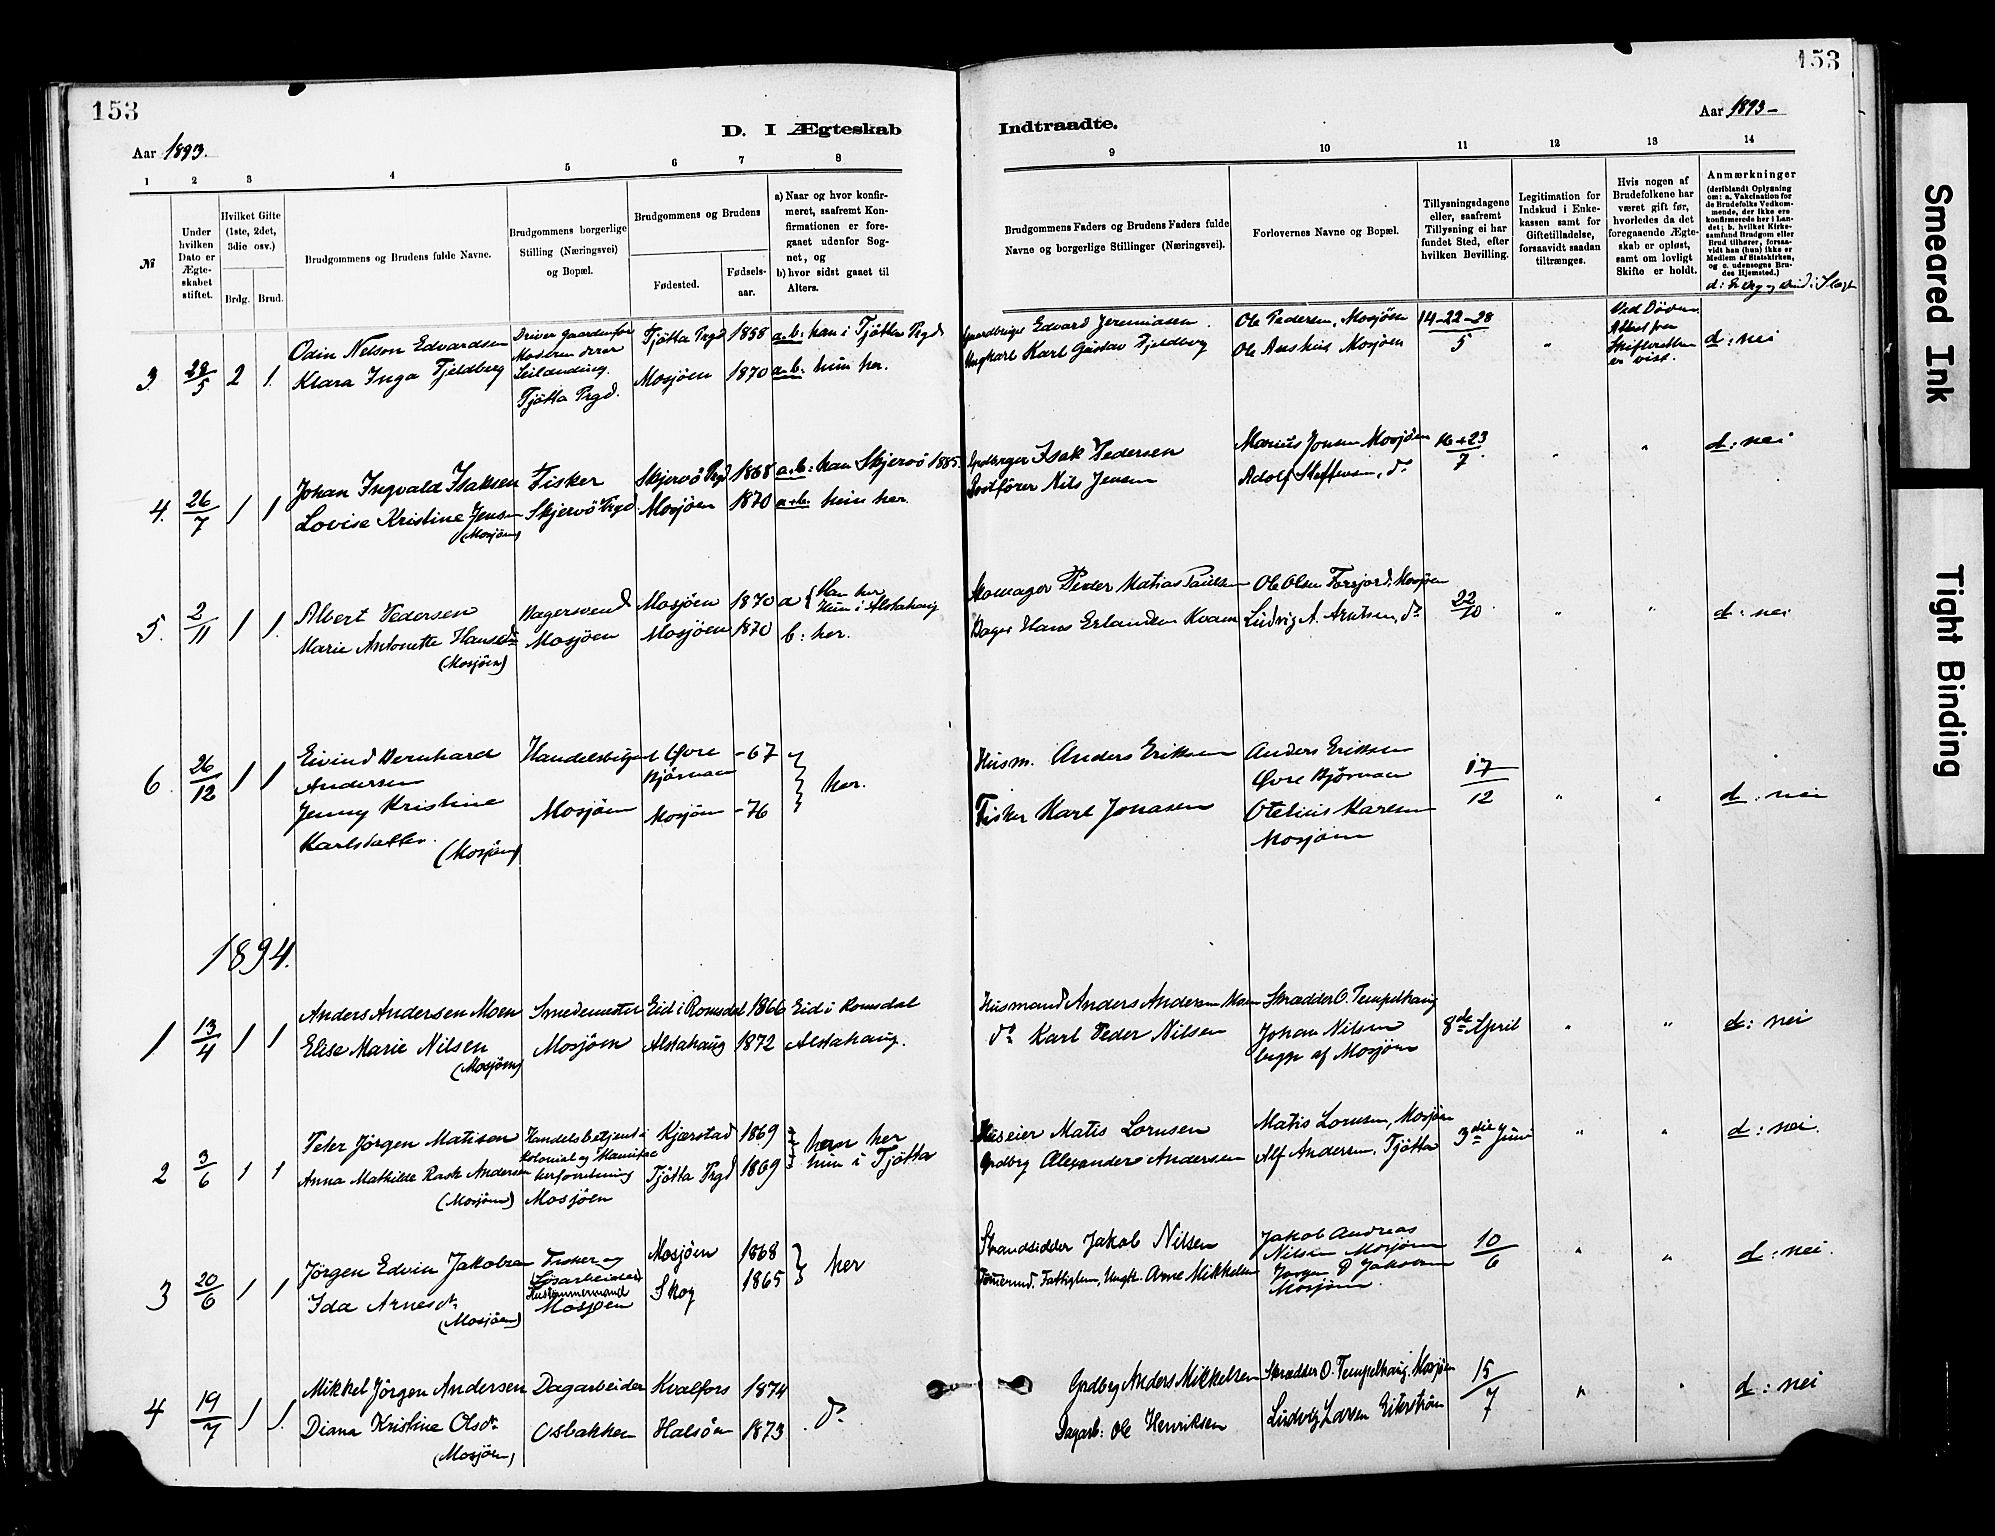 153
Aar 1893.
D. I Ægteskab
1 2 3 4 5 6 7 8
№
Under hvilken Dato er Ægteskabet stiftet.
Hvilket Gifte (1ste, 2det, 3die osv.)
Brdg. Brud.
Brudgommens og Brudens fulde Navne.
Brudgommens borgerlige Stilling (Næringsvei) og Bopæl.
Brudgommens og Brudens
Fødested.
Fødsels-aar.
a) Naar og hvor konfirmeret, saafremt Konfirmationen er foregaaet udenfor Sognet, og
b) hvor sidst gaaet til Alters.
153
Aar 1893-
Indtraadte.
9 10 11 12 13 14
Brudgommens Faders og Brudens Faders fulde Navne og borgerlige Stillinger (Næringsvei).
Forlovernes Navne og Bopæl.
Tillysningsdagene eller, saafremt Tillysning ei har fundet Sted, efter hvilken Bevilling.
Legitimation for Indskud i Enkekassen samt for Giftetilladelse, forsaavidt saadan tiltrænges.
Hvis nogen af Brudefolkene har været gift før, hvorledes da det foregaaende Ægteskab er opløst, samt om lovligt Skifte er holdt.
Anmærkninger
(deriblandt Oplysning om: a. Vakcination for de Brudefolks Vedkommende, der ikke ere konfirmerede her i Landet; b. hvilket Kirkesamfund Brudgom eller Brud tilhører, forsaavidt han (hun) ikke er Medlem af Statskirken, og c. udensogns Brudes Hjemsted.)
3. 28/5 2 1. Odin Nelson Edvardsen
Klara Inga Fjeldberg
Driver Gaarden for
Moderen
Tjøtta Prgd.
Tjøtta Prgd 1858 a.b: han i Tjøtta Prgd
Mosjøen 1870 a.b: hun her.
Gaardbruger Edvard Jeremiasen. Ole Pedersen, Mosjøen 14-22-28/5
Karl Gustav Fjeldberg Ole Mosjøen
Ved Døden.
Attest fra
Skifteretten
er vist.
d: nei
4. 26/7 1 1 Johan Ingvald Isaksen Fisker Skjervø Prgd 1868 a.b: han Skjervø 1885.
Lovise Kristine Jensen Skjervø Prgd Mosjøen 1870 a+b. hun her.
(Mosjøen)
Isak Pedersen Marius Jonsen Mosjøen 16+23/7.
Postfører Nils Jensen Adolf Steffensen, do
d: nei
5. 2/11 1 1. Albert Pedersen Bagersvend Mosjøen 1870 a { Han her
Hun i Alstahaug
Marie Antonette Hansen Mosjøen Mosjøen 1870 b: her.
(Mosjøen)
Skomager Peder Matias Paulsen Ole Olsen Forsjord, Mosjøen 22/10.
Bager Hans Erlandsen Kvam Ludvig A. Arntsen, do
d: nei
6. 26/12 1 1 Eivind Bernhard Andersen
Jenny Kristine Karlsdatter.
(Mosjøen)
Mosjøen
Øvre Bjørnaa -67
Mosjøen -76
her.
Husm. Anders Eriksen Anders Eriksen
Øvre Bjørnaa
Fisker Karl Jonasen Otelius Karlsen
Mosjøen
17/12
d: nei
1894.
1 13/4 1 1 Anders Andersen Moen Smedemester Eid i Romsdal 1866 Eid i Romsdal
Elise Marie Nilsen Mosjøen Alstahaug 1872 Alstahaug.
(Mosjøen)
Husmand Anders Andersen Moen Skrædder O. Tempelhaug
do Karl Peder Nilsen Johan Nilsen
begge af Mosjøen
8de April
d: nei
2 3/6 1 1 Peter Jørgen Matisen Handelsbetjent i
Kolonial og Manufac
Anna Mathilde Rask Andersen forretning
(Mosjøen) Mosjøen
Kjærstad 1869 han her
Tjøtta Prgd 1869 hun i Tjøtta
Huseier Matis Lornsen Matis Lornsen, Mosjøen
Grdbrg Alexander Andersen Alf Andersen, Tjøtta
3die Juni
d: nei.
3 20/6 1 1 Jørgen Edvin Jakobsen Fisker og
Løsarbeider
Ida Arnesdr. Mosjøen
(Mosjøen)
Mosjøen 1868
Skog 1865
her
Strandsidder Jakob Nilsen Jakob Andreas
Nilsen Mosjøen
Arne Mikkelsen Jørgen P Jakobsen
Mosjøen
10/6
d: nei.
4 19/7 1 1. Mikkel Jørgen Andersen Dagarbeider Kvalfors 1874
Diana Kristine Olsdr. Osbakken Halsøen 1873 do
(Mosjøen)
Grdbrg Anders Mikkelsen Skrædder O. Tempelhaug, Mosjøen
Dagarb: Ole Henriksen Ludvig Larsen
15/7
d: nei
Smeared Ink
Tight Binding